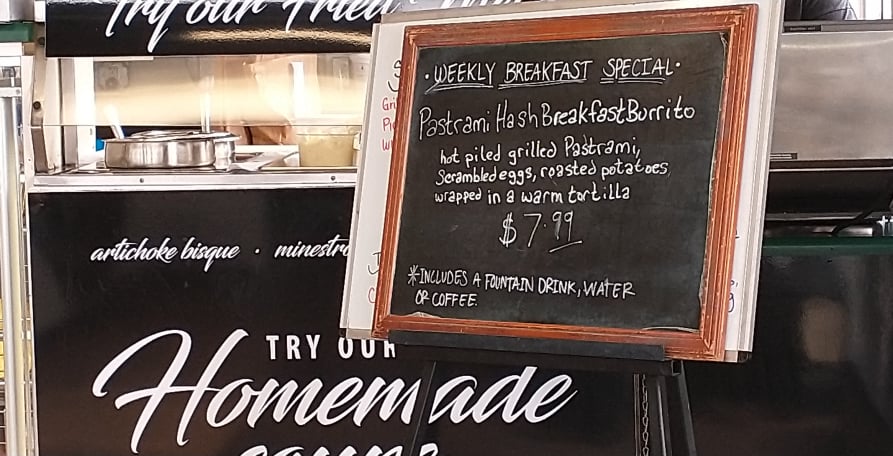 Try our Fried
· WEEKLY BREAKFAST SPECIAL ·
Pastrami Hash Breakfast Burrito
hot piled grilled Pastrami,
Scrambled eggs, roasted potatoes
wrapped in a warm tortilla
$7.99
*INCLUDES A FOUNTAIN DRINK, WATER
OR COFFEE.
artichoke bisque ·
TRY OUR
Homemade